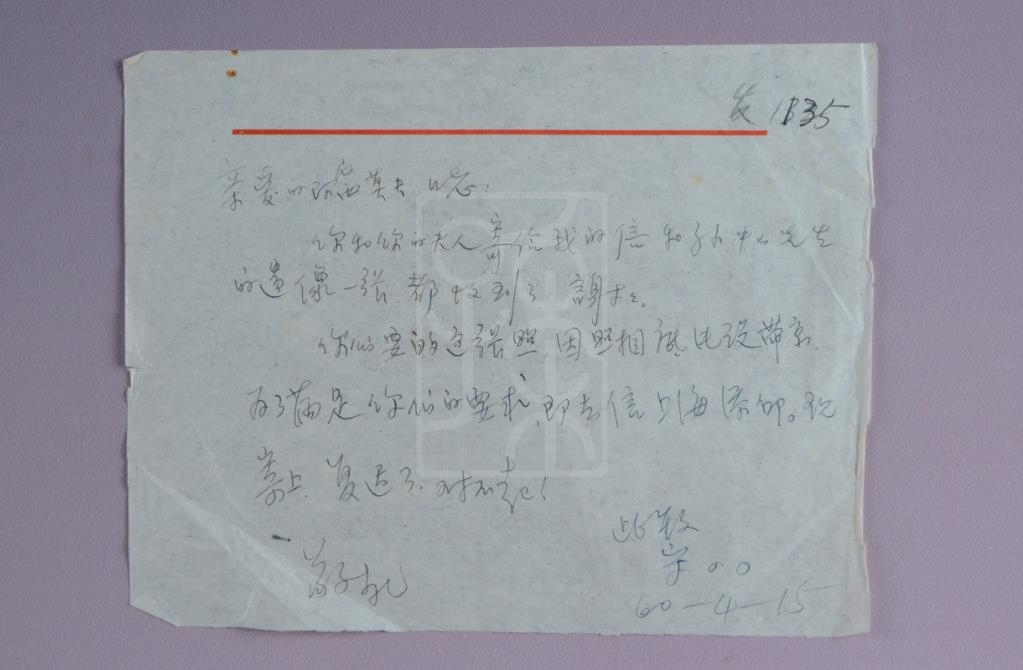 发 1835
亲爱的 同志：
你和你的夫人寄给我的信和孙中山先生
的遗像一张，都收到了，謝谢。
你们要的这张照，因照相底片没带京，
为了满足你们的要求，即去信上海添印。现
寄上，复迟了，对不起！
此致
宋○○
敬礼
60—4—15